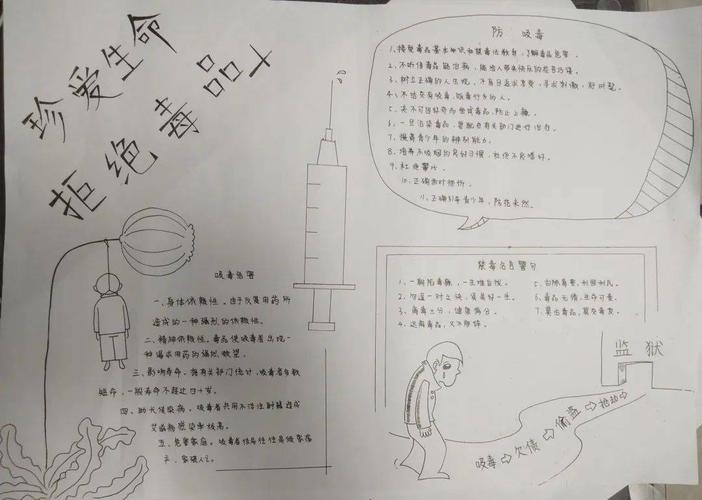 珍爱生命
拒绝毒品
吸毒危害
一、身体依赖性。由于反复用药所
造成的一种强烈的依赖性。
二、精神依赖性。毒品使吸毒者出现一
种渴求用药的强烈欲望。
三、影响寿命。据有关部门统计，吸毒者自我
短命，一般寿命不超过四十岁。
四、助长传染病。吸毒者共用不洁注射器造成
艾滋病感染率极高。
五、危害家庭。吸毒者往往
亡。
防 吸毒
1、接受毒品基本知识和禁毒法教育，了解毒品危害。
2、不听信毒品能治病，
3、树立正确的人生观，不盲目追求享受，寻求刺激，赶时髦。
4、不结交有吸毒、贩毒行为的人。
5、决不可因好奇而尝试毒品，防止上瘾。
6、一旦沾染毒品，要配合有关部门进行治疗。
7、提高青少年的辨别能力。
8、培养不吸烟的良好习惯，杜绝不良嗜好。
9、杜绝
10、正确面对挫折。
11、正确引导青少年，防范未然。
禁毒名言警句
1、一朝陷毒瘾，一生难自拔。
2、勿逞一时之快，
3、离毒三分，健康满分。
4、远离毒品，
5、
6、毒品无情，生命可贵。
7、莫沾毒品，莫交毒友。
监狱
吸毒 欠债 偷盗 抢劫